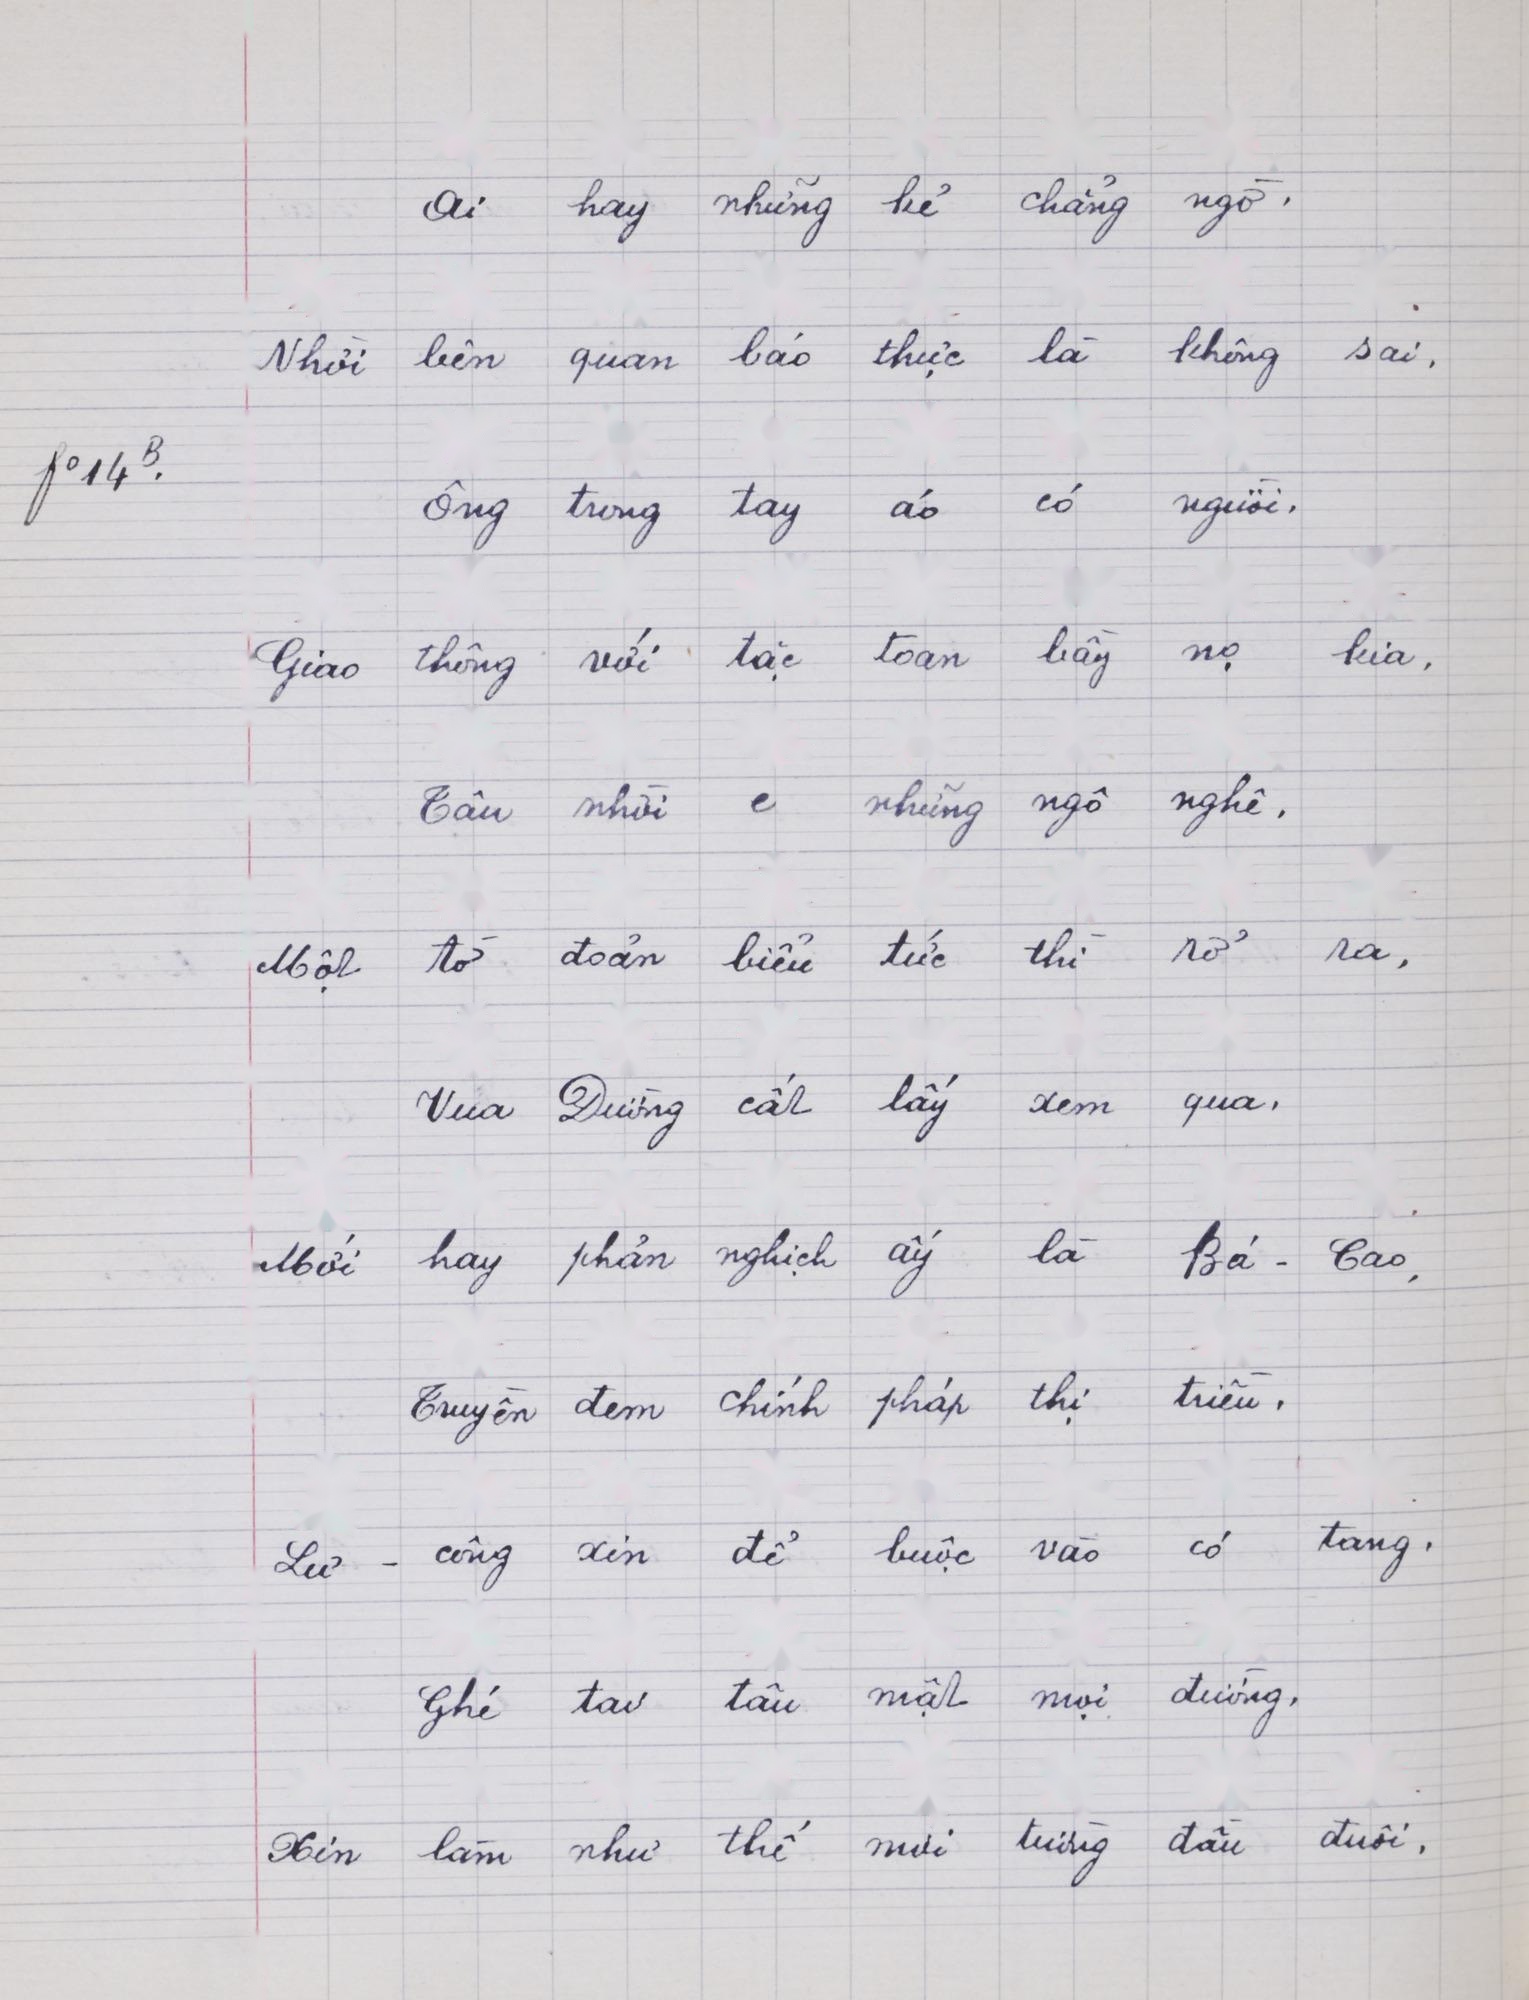 Ai hay những kẻ chẳng ngờ.
Nhời bên quan báo thực là không sai.
fº 14 B.
Ông trong tay áo có người.
Giao thông với tặc toan bầy nọ kia.
Tâu nhời e những ngô nghê.
Một tờ đoản biểu tức thì rở ra,
Vua Đường cất lấy xem qua.
Mới hay phản nghịch ấy là Bá - Cao,
Truyền đem chính pháp thị triều.
Lư - công xin để buộc vào có tang.
Ghé tai tâu mật mọi đường.
Xin làm như thế mới tường đầu đuôi.